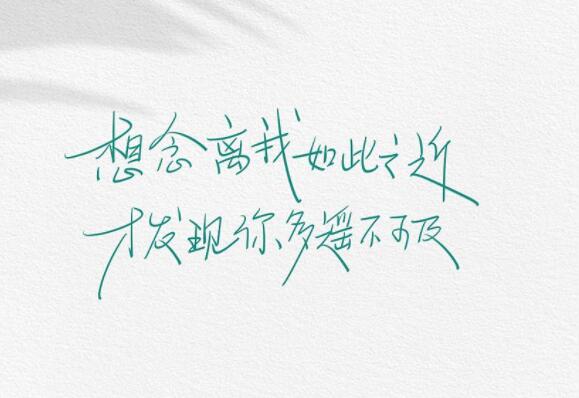 想念离我如此之近
才发现你多遥不可及